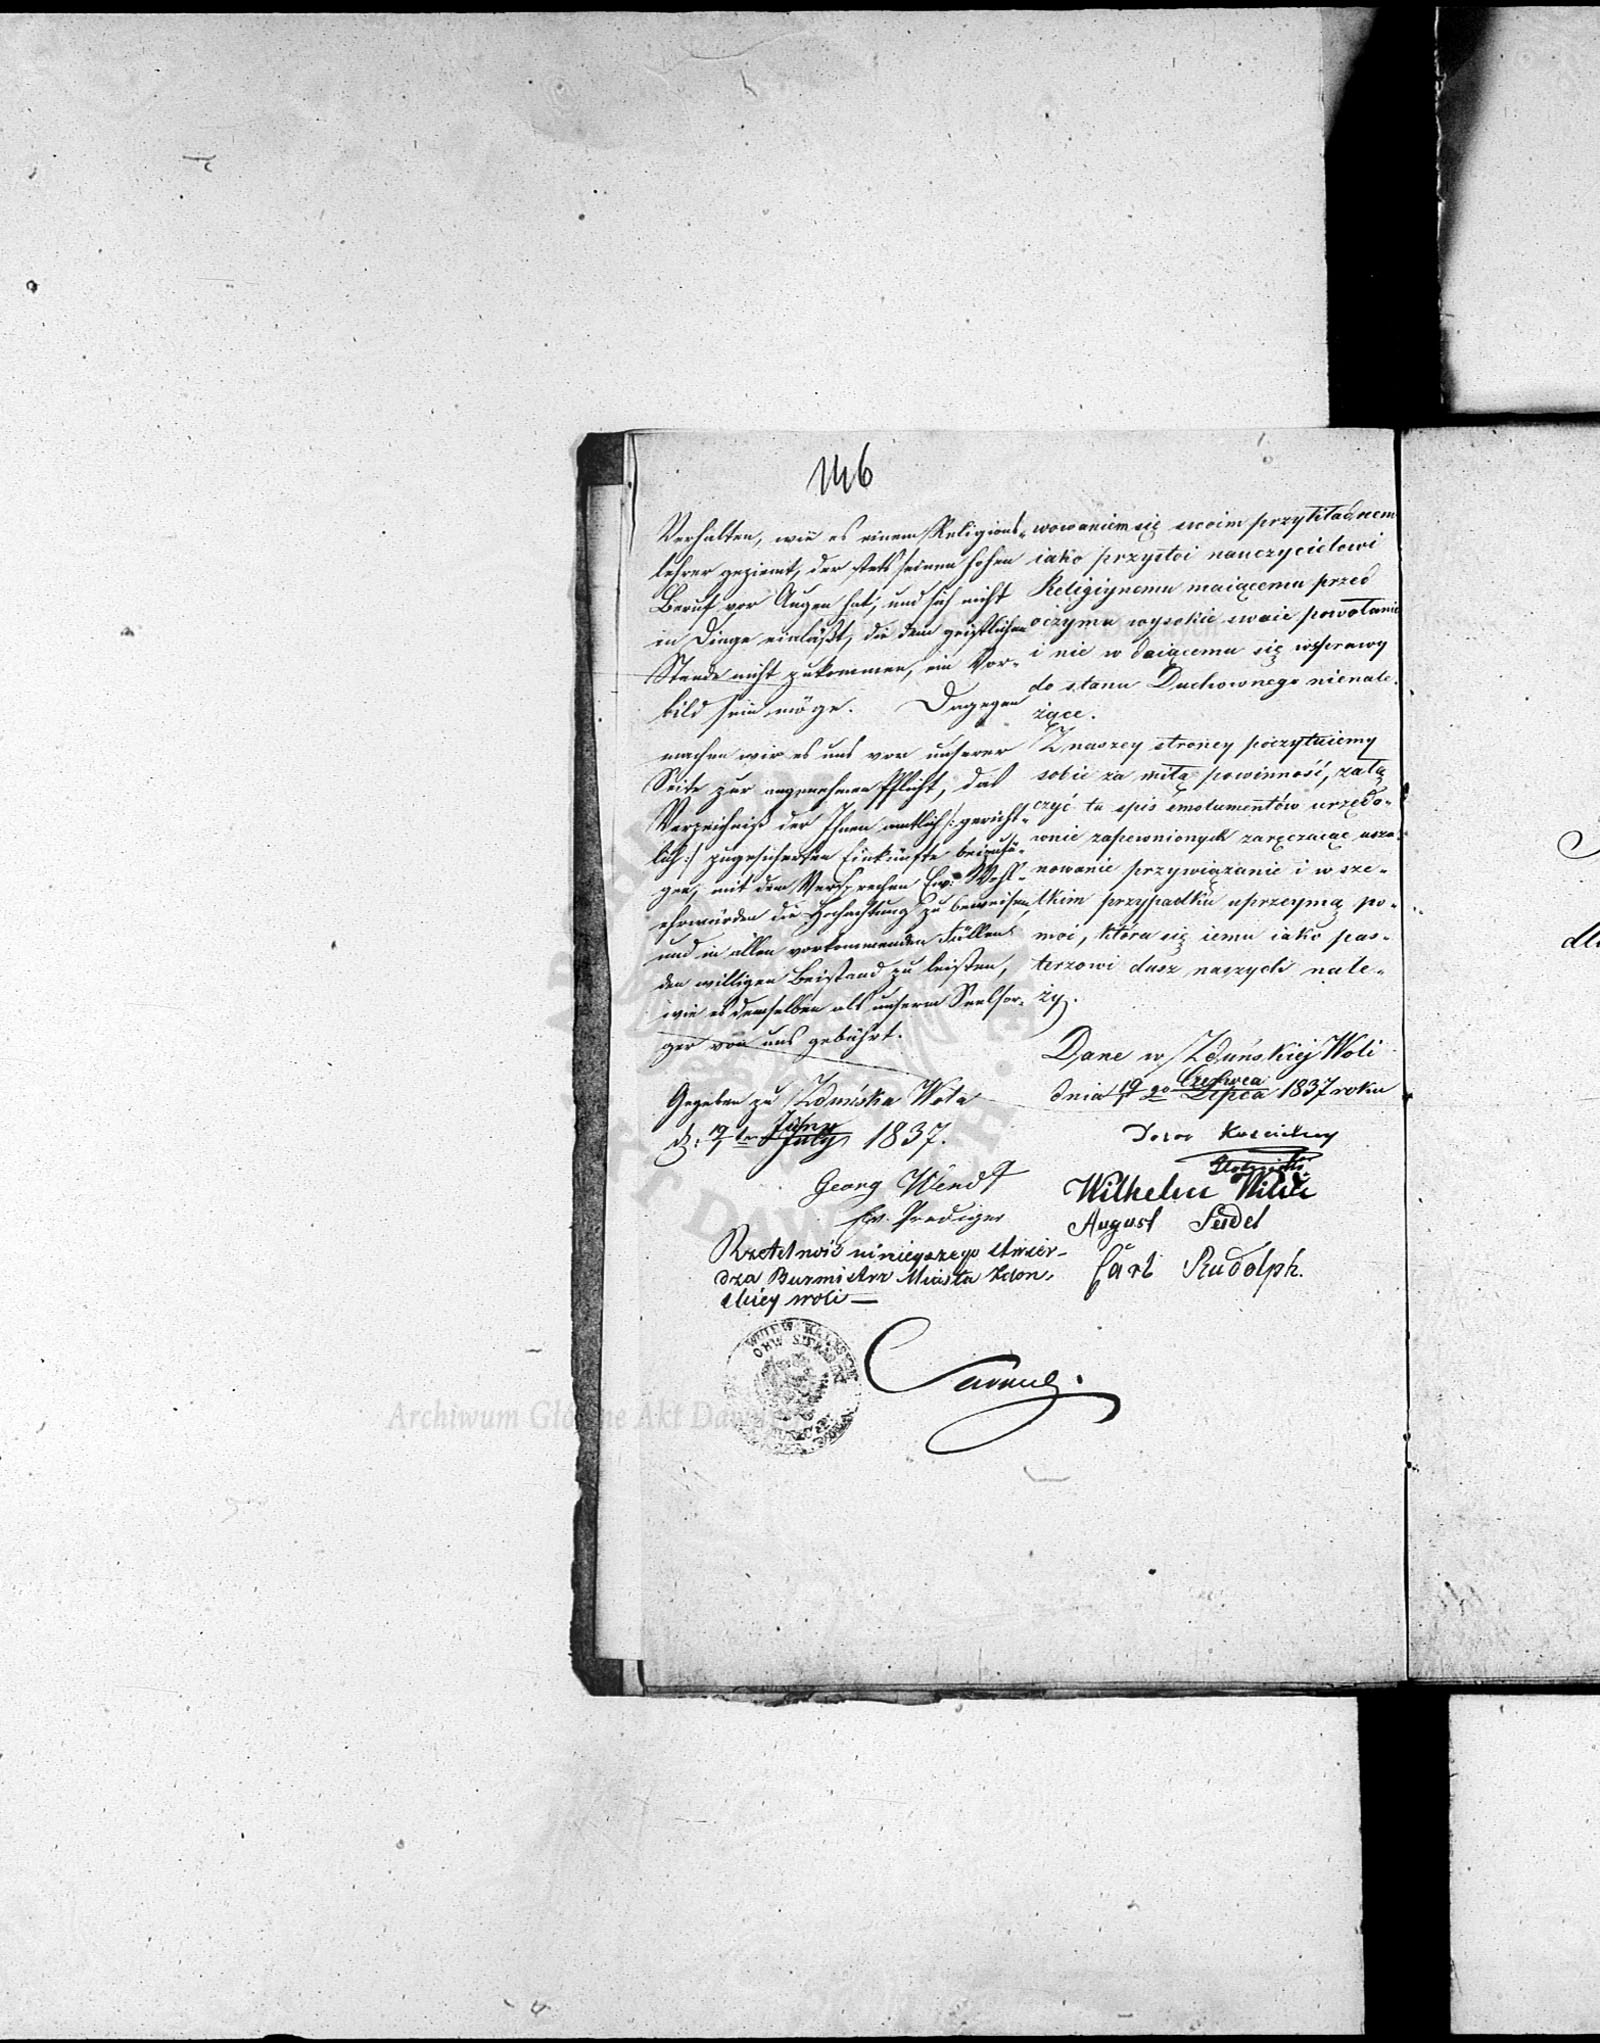 146
Verhalten, wie es einem Religions-
lehrer geziemt, der stets seinen hohen
Beruf vor Augen hat, und sich nicht
in Dinge einläßt, die dem geistlichen
Stande nicht zukommen, ein Vor-
bild sein möge. Dagegen
machen wir es uns von unserer
Seite zur angenehmen Pflicht, das
Verzeichniß der Ihnen amtlich /: gericht-
lich :/ zugesicherten Einkünfte beizufü-
gen, mit dem Versprechen Ew: Wohl-
ehrwürden die Hochachtung zu beweisen,
und in allen vorkommenden Fällen
den willigen Beistand zu leisten,
wie es demselben als unserm Seelsor-
ger von uns gebührt.
Gegeben zu Zduńska Wola
d. 19 ten Juny July 1837.
Georg Wendt
Ew. Prediger
Rzetelność ninieyszego stwier-
dza Burmistrz Miasta Zdon-
skiey woli —
wowaniem się swoim przykładnem
iako przystoi nauczycielowi
Religiynemu maiącemu przed
oczyma wysokie swoie powołanie
i nie w daiącemu się wsprawy
do stanu Duchownego nienale-
żące.
Z naszey stroney poczytuiemy
sobie za miłą powinność, załą
czyć tu spis emolumentów urzędo-
wnie zapewnionych zaręczaiąc usza-
nowanie przywiązanie i w sze-
lkim przypadku uprzeymą po-
moc, która się iemu iako pas-
terzowi dusz naszych nale-
ży.
Dane w Zduńskiej Woli
dnia 19 go Czerwca Lipca 1837 roku
Dozor Koscielny
Wilhelm
August Seidel
Carl Rudolph.
WOIEW. KALISKIE
OBW. SIERADZ
Archiwum Główne Akt Dawnych